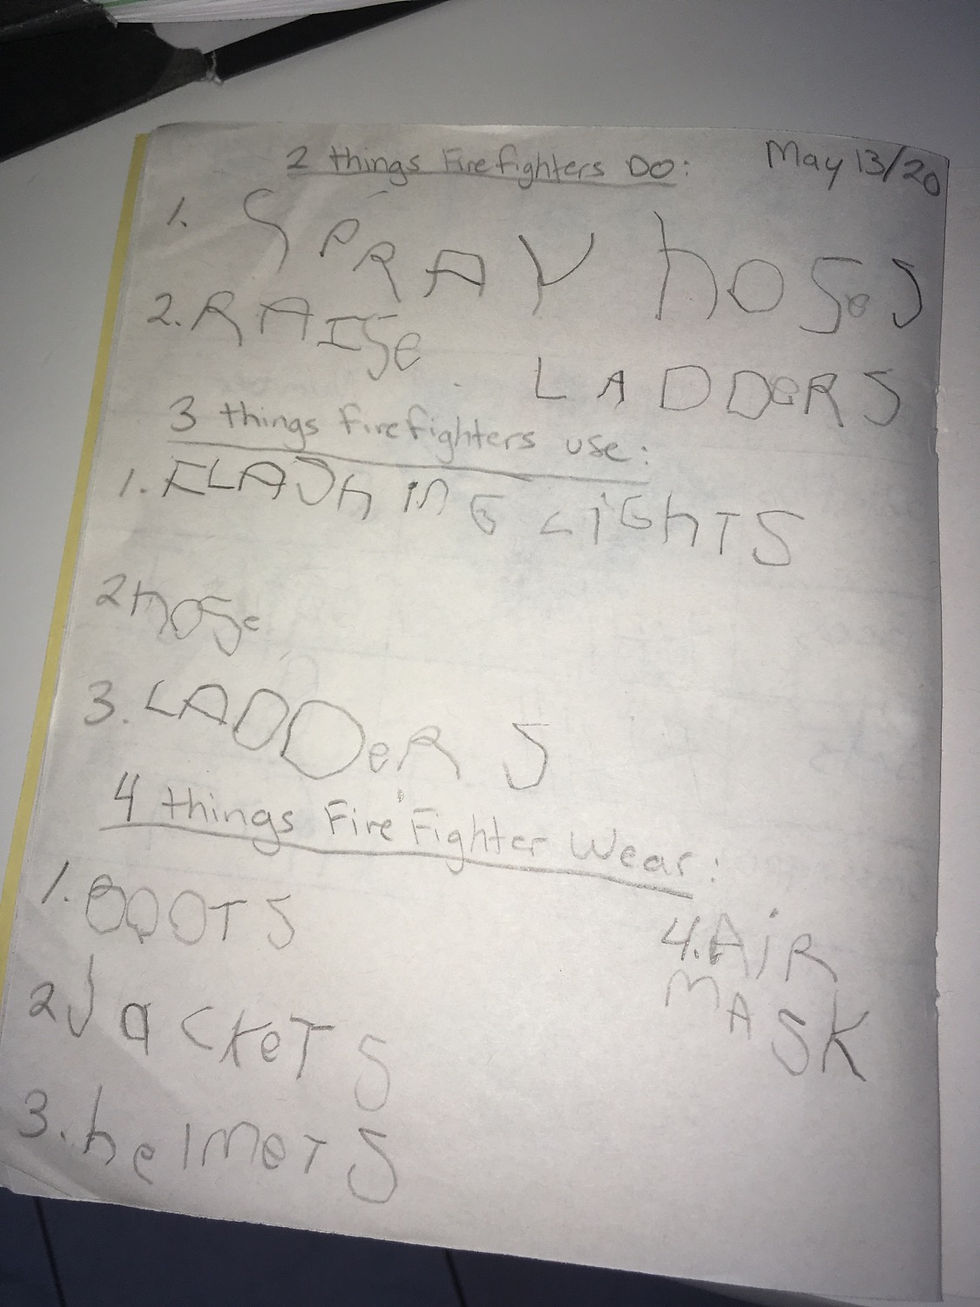 2 things Firefighters Do: May 13/20
1. SPRAY hoSeS
2. RAISe LADDeRS
3 things firefighters use:
1. FLAShinG LiGhTS
2 hoSe
3. LADDeRS
4 things Fire Fighter Wear:
1. BOOTS
2 JacKeTS
3. helmeTS
4. AiR
MASK